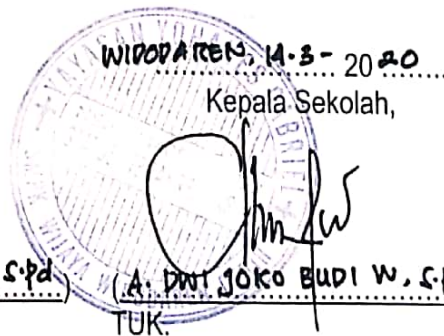 WIDODAREN, 14-3- 2020
Kepala Sekolah,
S.Pd.) (A. DWI JOKO BUDI W, S.P
TUK.